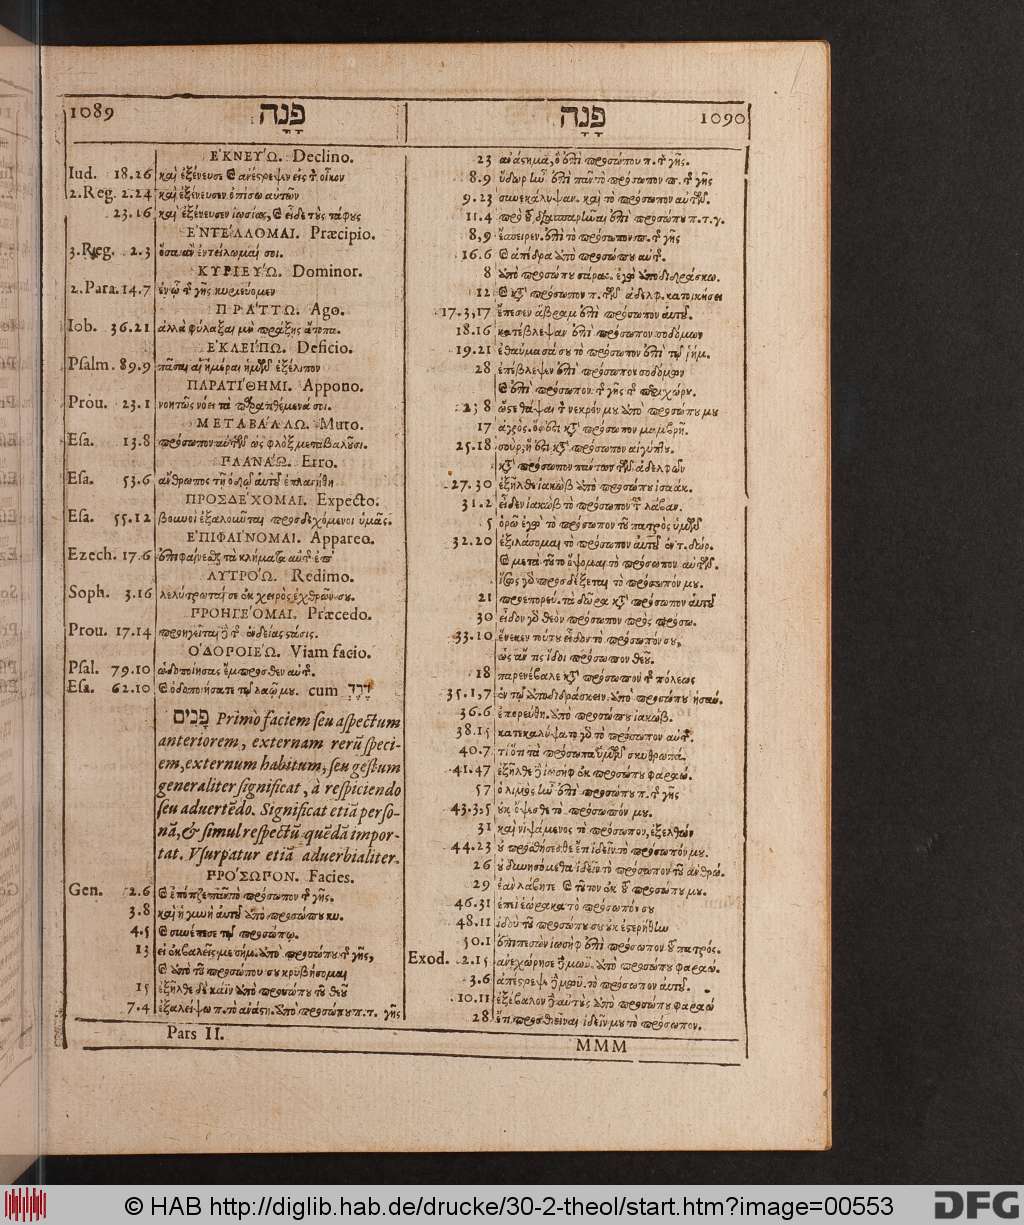 1089 פָּנָה
פָּנָה 1090
ἘΚΝΕΥΏ. Declino.
Iud. 18.26 καὶ ἐξένευσε
2.Reg. 2.24 καὶ ἐξένευσεν ὀπίσω αὐτῶν
23.16 καὶ ἐξένευσεν ἰωσίας, καὶ εἶδε τοὺς τάφους
ἘΝΤΕΊΛΛΟΜΑΙ. Præcipio.
3.Reg. 2.3 ὅσα ἂν ἐντείλωμαί σοι.
ΚΥΡΙΕΥΏ. Dominor.
2.Para. 14.7 ἐν ᾧ τῆς γῆς κυριεύομεν
ΠΡΆΤΤΩ. Ago.
Iob. 36.21 ἀλλὰ φύλαξαι μὴ πράξῃς ἄτοπα.
ἘΚΛΕΊΠΩ. Deficio.
Psalm. 89.9 πᾶσαι αἱ ἡμέραι ἡμῶν ἐξέλιπον
ΠΑΡΑΤΊΘΗΜΙ. Appono.
Prou. 23.1 νοητῶς νόει τὰ παρατιθέμενά σοι.
ΜΕΤΑΒΆΛΛΩ. Muto.
Esa. 13.8 πρόσωπον αὐτῶν ὡς φλὸξ μεταβαλοῦσι.
ΠΛΑΝΆΩ. Erro.
Esa. 53.6 ἄνθρωπος τῇ ὁδῷ αὐτοῦ ἐπλανήθη
ΠΡΟΣΔΈΧΟΜΑΙ. Expecto.
Esa. 55.12 βουνοὶ ἐξαλοῦνται προσδεχόμενοι ὑμᾶς.
ἘΠΙΦΑΊΝΟΜΑΙ. Appareo.
Ezech. 17.6 ἐπιφαίνεσθαι τὰ κλήματα αὐτῆς ἐπ'
ΛΥΤΡΌΩ. Redimo.
Soph. 3.16 λελύτρωταί σε ἐκ χειρὸς ἐχθρῶν σου.
ΠΡΟΗΓΈΟΜΑΙ. Præcedo.
Prou. 17.14 προηγεῖται δὲ τῆς ἐνδείας στάσις.
ὉΔΟΠΟΙΈΩ. Viam facio.
Psal. 79.10 ὡδοποίησας ἔμπροσθεν αὐτῆς.
Esa. 62.10 καὶ ὁδοποιήσατε τῷ λαῷ μου. cum דֶּרֶךְ
פָּנִים Primò faciem seu aspectum
anteriorem, externam rerũ speci-
em, externum habitum, seu gestum
generaliter significat, à respiciendo
seu aduertẽdo. Significat etiã perso-
nã, & simul respectũ quẽdã impor-
tat. Vsurpatur etiã aduerbialiter.
ΠΡΌΣΩΠΟΝ. Facies.
Gen. 2.6 καὶ ἐπότιζε πᾶν τὸ πρόσωπον τῆς γῆς.
3.8 καὶ ἡ γυνὴ αὐτοῦ ἀπὸ προσώπου κυ.
4.5 καὶ συνέπεσε τῷ προσώπῳ.
13 εἰ ἐκβαλεῖς με σήμ. ἀπὸ προσώπου τῆς γῆς,
καὶ ἀπὸ τοῦ προσώπου σου κρυβήσομαι
15 ἐξῆλθε δὲ κάϊν ἀπὸ προσώπου τοῦ θεοῦ
7.4 ἐξαλείψω π. τὸ ἀνάστ. ἀπὸ προσώπου π. τ. γῆς
Pars II.
23 ἀνάστημα, ὃ ἐπὶ προσώπου π. τῆς γῆς.
8.9 ὕδωρ ἦν ἐπὶ πᾶν τὸ πρόσωπον π. τῆς γῆς
9.23 συνεκάλυψαν. καὶ τὸ πρόσωπον αὐτῶν.
11.4 πρὸ τοῦ διασπαρῆναι ἐπὶ προσώπου π. τ. γ.
8,9 ἔσπειρεν. ἐπὶ τὸ πρόσωπον π. τῆς γῆς
16.6 καὶ ἀπέδρα ἀπὸ προσώπου αὐτῆς.
8 ἀπὸ προσώπου σάρας. ἐγὼ ἀποδιδράσκω.
12 καὶ κατὰ πρόσωπον π. τῶν ἀδελφ. κατοικήσει
17.3,17 ἔπεσεν ἅβραμ ἐπὶ πρόσωπον αὐτοῦ.
18.16 κατέβλεψαν ἐπὶ πρόσωπον σοδόμων
19.21 ἐθαύμασά σου τὸ πρόσωπον ἐπὶ τῷ ῥήμ.
28 ἐπέβλεψεν ἐπὶ πρόσωπον σοδόμων
καὶ ἐπὶ πρόσωπον. τῆς γῆς τῆς περιχώρου.
23.8 ὥστε θάψαι τὸν νεκρόν μου ἀπὸ προσώπου μου
17 ἀγρὸς. ὅς ἐστι κατὰ πρόσωπον μαμβρῆ.
25.18 σοὺρ, ἥ ἐστι κατὰ πρόσωπον αἰγύπτου.
κατὰ πρόσωπον πάντων τῶν ἀδελφῶν
27.30 ἐξῆλθε ἰακὼβ ἀπὸ προσώπου ἰσαάκ.
31.2 εἶδεν ἰακὼβ τὸ πρόσωπον τοῦ λάβαν.
5 ὁρῶ ἐγὼ τὸ πρόσωπον τοῦ πατρὸς ὑμῶν
32.20 ἐξιλάσομαι τὸ πρόσωπον αὐτοῦ ἐν τ. δώρ.
καὶ μετὰ τοῦτο ὄψομαι τὸ πρόσωπον αὐτοῦ.
ἴσως γὰρ προσδέξεται τὸ πρόσωπόν μου.
21 προεπορεύ. τὰ δῶρα κατὰ πρόσωπον αὐτοῦ
30 εἶδον γὰρ θεὸν πρόσωπον πρὸς πρόσω.
33.10 ἕνεκεν τούτου εἶδον τὸ πρόσωπόν σου,
ὡς ἄν τις ἴδοι πρόσωπον θεοῦ.
18 παρενέβαλε κατὰ πρόσωπον τῆς πόλεως
35.1,7 ἐν τῷ ἀποδιδράσκειν ἀπὸ προσώπου ἠσαύ.
36.6 ἐπορεύθη. ἀπὸ προσώπου ἰακώβ.
38.15 κατεκαλύψατο γὰρ τὸ πρόσωπον αὐτῆς.
40.7 τί ὅτι τὰ πρόσωπα ὑμῶν σκυθρωπά.
41.47 ἐξῆλθε δὲ ἰωσὴφ ἐκ προσώπου φαραώ.
57 ὁ λιμὸς ἦν ἐπὶ προσώπου π. τῆς γῆς
43.3,5 οὐκ ὄψεσθε τὸ πρόσωπόν μου.
31 καὶ νιψάμενος τὸ πρόσωπον, ἐξελθὼν
44.23 οὐ προσθήσεσθε ἔτι ἰδεῖν τὸ πρόσωπόν μου.
26 οὐ δυνησόμεθα ἰδεῖν τὸ πρόσωπον τοῦ ἀνθρώ.
29 ἐὰν λάβητε καὶ τοῦτον ἐκ τοῦ προσώπου μου.
46.31 ἐπεὶ ἑώρακα τὸ πρόσωπόν σου
48.11 ἰδοὺ τοῦ προσώπου σου οὐκ ἐστερήθην
50.1 ἐπιπεσὼν ἰωσὴφ ἐπὶ πρόσωπον τοῦ πατρός.
Exod. 2.15 ἀνεχώρησε δὲ μωϋ. ἀπὸ προσώπου φαραώ.
3.6 ἀπέστρεψε δὲ μωϋ. τὸ πρόσωπον αὐτοῦ.
10.11 ἐξέβαλον δὲ αὐτοὺς ἀπὸ προσώπου φαραώ
28 ἔτι προσθεῖναι ἰδεῖν μου τὸ πρόσωπον.
MMM
© HAB http://diglib.hab.de/drucke/30-2-theol/start.htm?image=00553
DFG